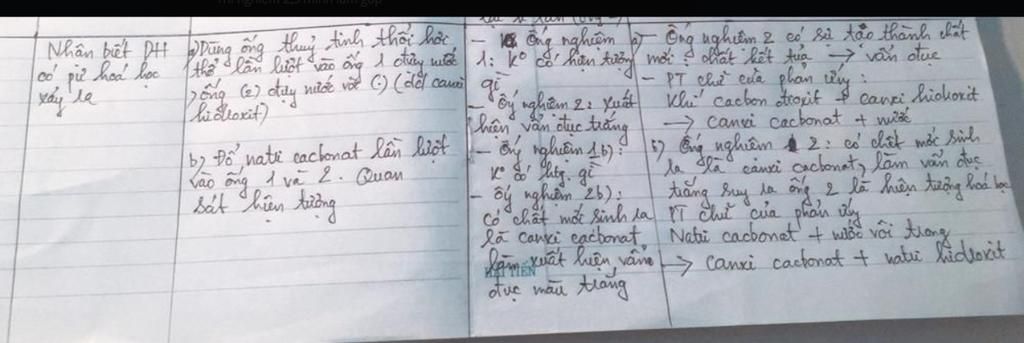 Nhận biết DH
có pư hoá học
xảy ra
a) Dùng ống thuỷ tinh thổi hơi
thở lần lượt vào ống 1 đựng nước
, ống (2) đựng nước vôi (.) (dd canxi
hiđroxit)
b) Đổ natri cacbonat lần lượt
vào ống 1 và 2. Quan
sát hiện tượng
- Ống nghiệm
1: K° có hiện tượng
gì
- Ống nghiệm 2: xuất
hiện vẩn đục trắng
- Ống nghiệm 1b):
K° có htg. gì
- Ống nghiệm 2b):
Có chất mới sinh ra
là canxi cacbonat
làm xuất hiện vẩn
đục màu trắng
HẢI TIẾN
a) - Ống nghiệm 2 có sự tạo thành chất
mới : chất kết tủa → vẩn đục
- PT chữ của phản ứng :
Khí cacbon đioxit + canxi hiđroxit
→ canxi cacbonat + nước
b) Ống nghiệm 2: có chất mới sinh
ra là canxi cacbonat, làm vẩn đục
trắng suy ra ống 2 là hiện tượng hoá học
PT chữ của phản ứng
Natri cacbonat + nước vôi trong
→ canxi cacbonat + natri hiđroxit